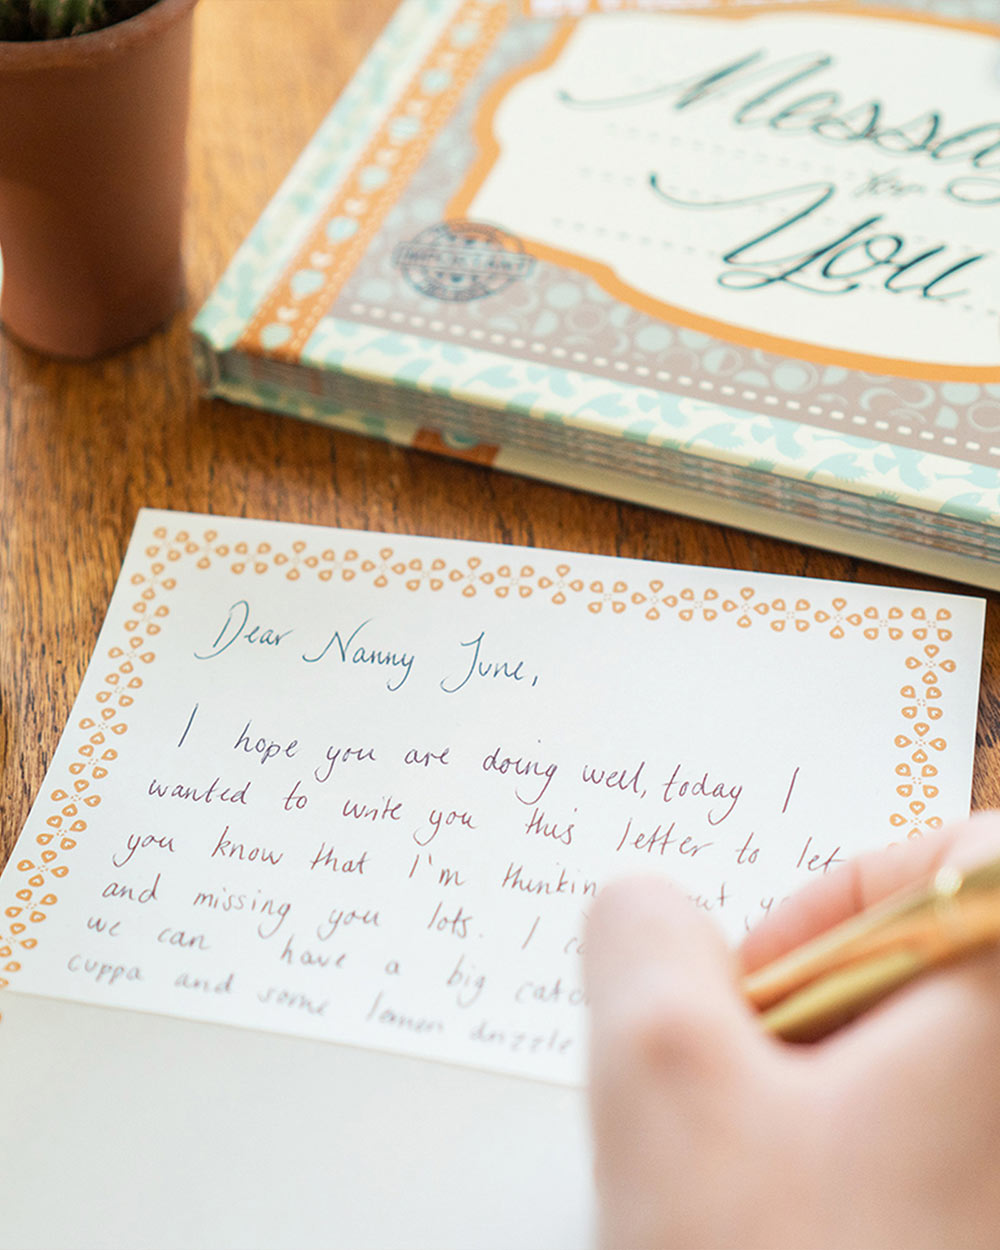 Messag
for
You
IMPORTANT
Dear Nanny June,
I hope you are doing well, today I
wanted to write you this letter to let
you know that I'm thinkin
and missing you lots. I
we can have a big catc
cuppa and some lemon drizzle